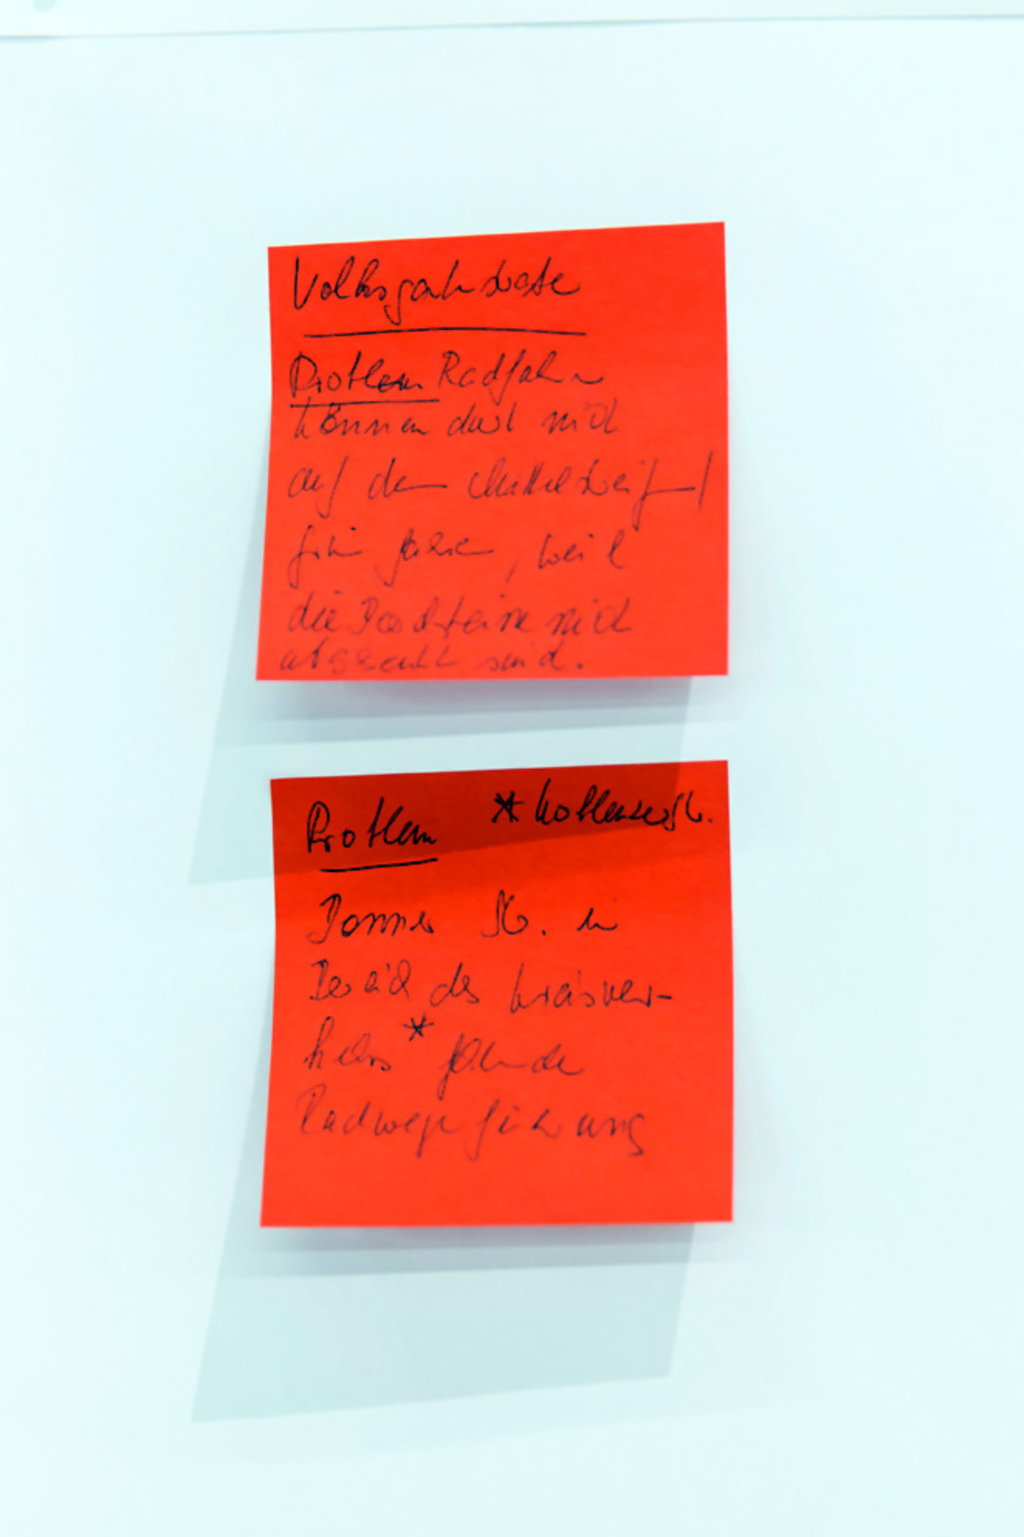 Volksgartenstraße
Problem Radfahrer
können dort nicht
auf dem Mittelstreifen
fahren, weil
die Bordsteine nicht
abgesenkt sind.
Problem *
Bonner Str. im
Bereich des Kreisver-
kehrs * fehlende
Radwegführung